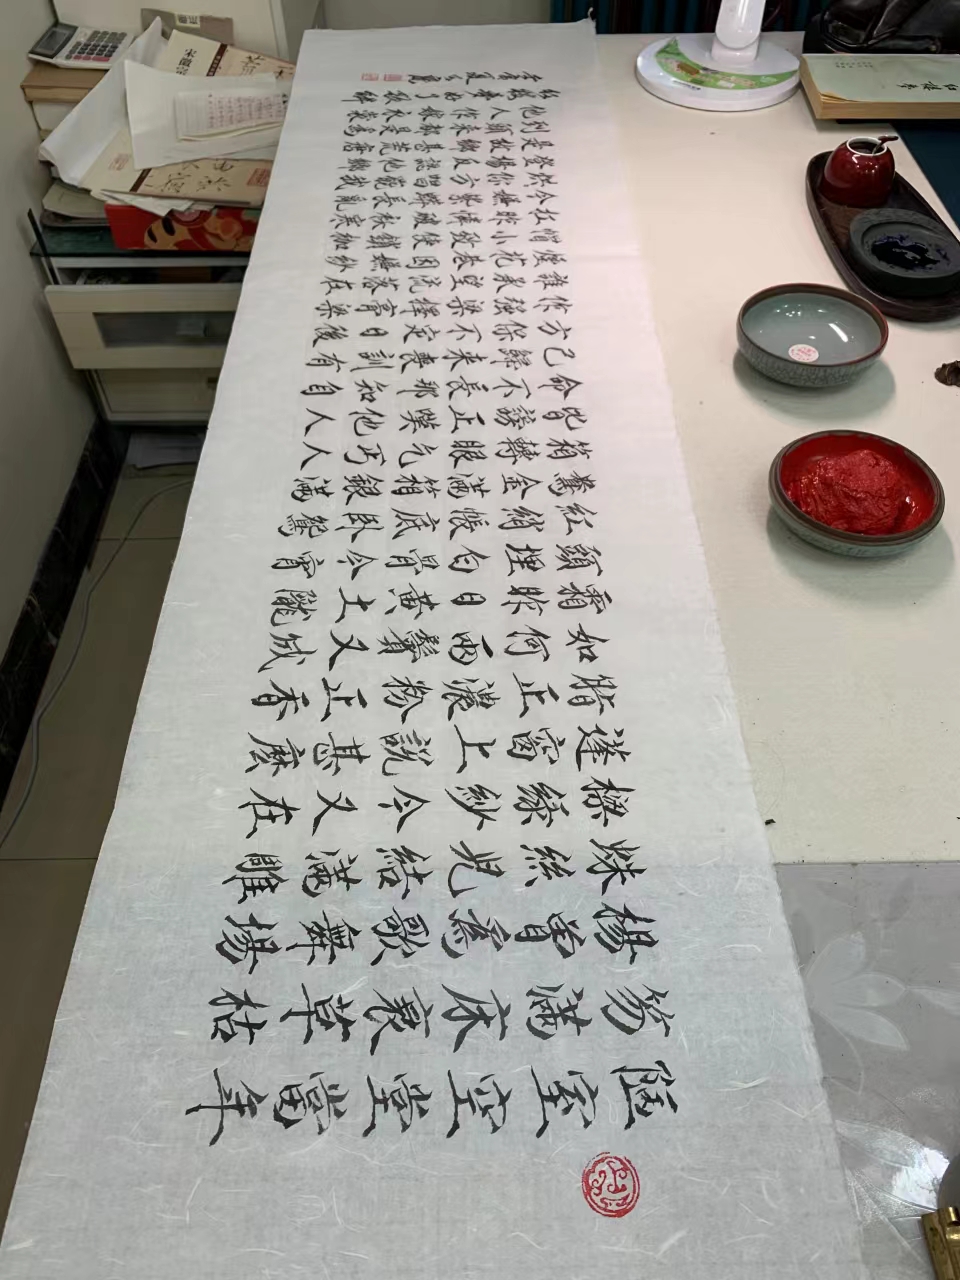 陋室空堂當年
笏滿床衰草枯
楊曾爲歌舞場
蛛絲兒結滿雕
樑綠紗今又在
蓬窗上說甚麼
脂正濃粉正香
如何兩鬢又成
霜昨日黃土隴
頭埋白骨今宵
紅綃帳底臥鴛
鴦金滿箱銀滿
箱轉眼乞丐人
皆謗正嘆他人
命不長那知自
己歸來喪訓有
方保不定日後
作強梁擇膏梁
誰承望流落在
煙花巷因嫌紗
帽小致使鎖枷
扛昨憐破襖寒
今嫌紫蟒長亂
烘你方唱罷我
登場反認他鄉
是故鄉甚荒唐
到頭來都是爲
他人作嫁衣裳
紅樓夢好了歌解